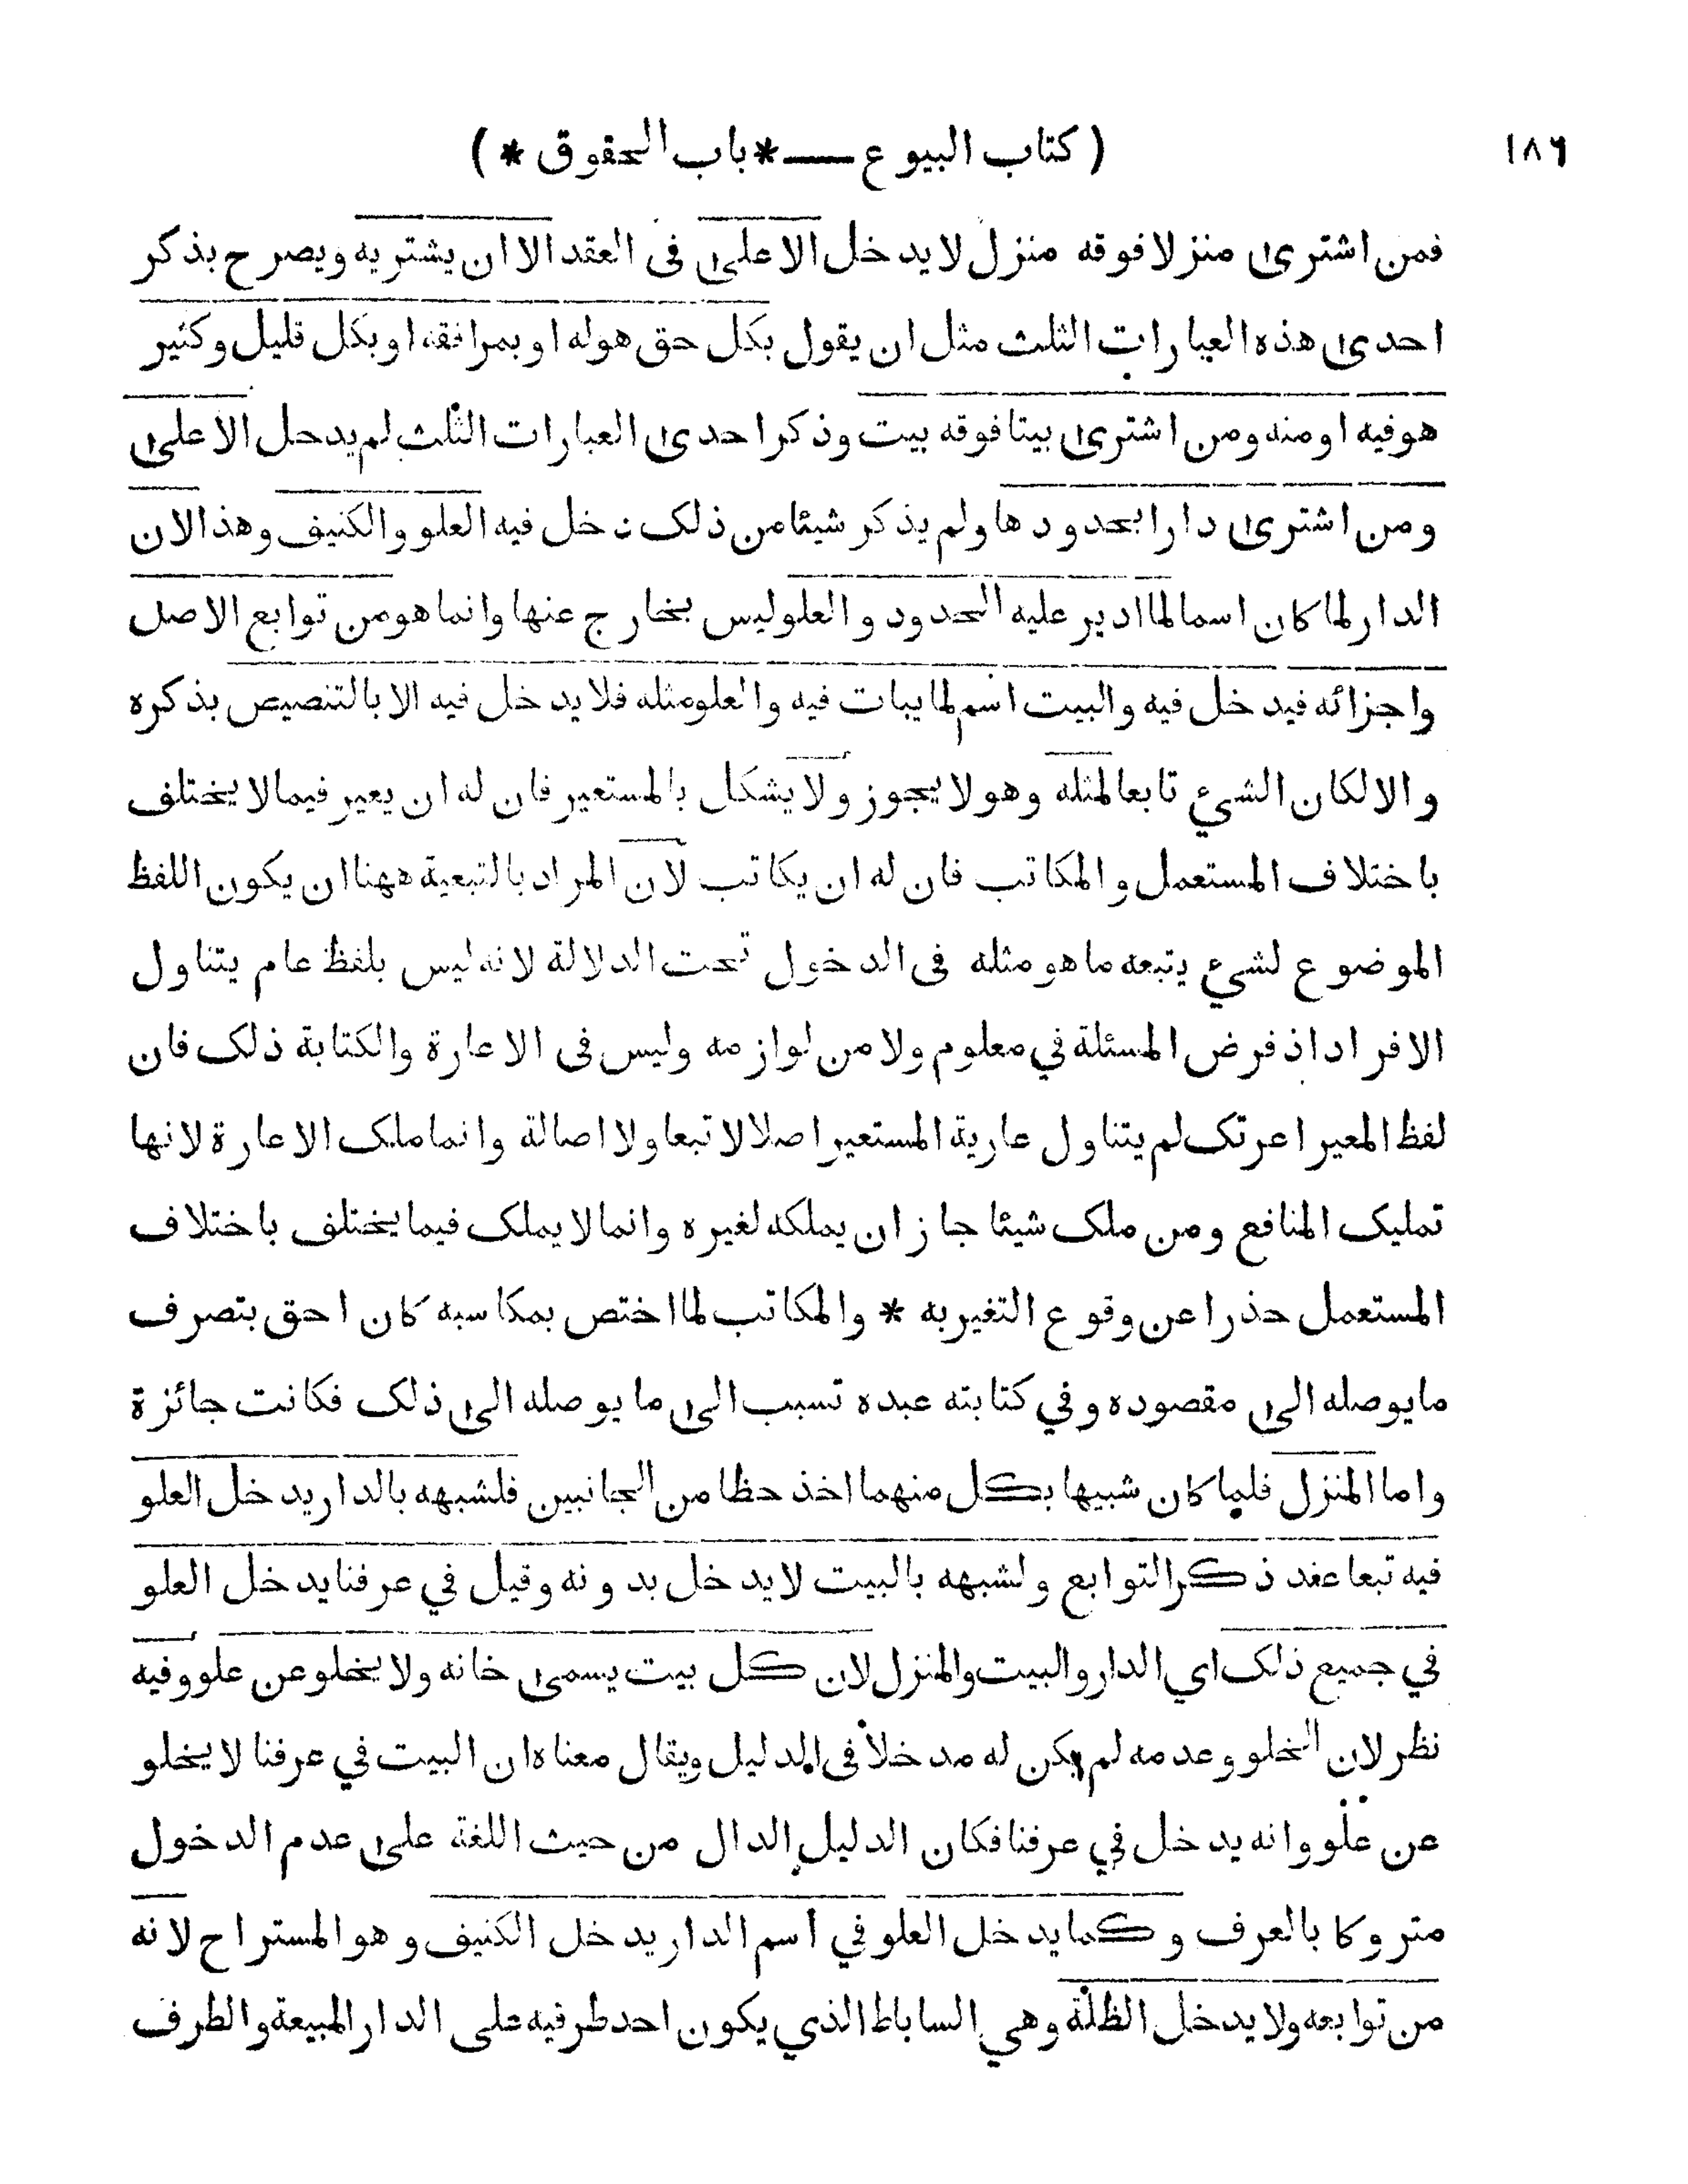 ١٨٦
( كتاب البيوع —* باب الحقوق * )
فمن اشترى منزلا فوقه منزل لا يدخل الاعلى فى العقد الا ان يشتريه ويصرح بذكر
احدى هذه العبارات الثلث مثل ان يقول بكل حق هو له او بمرافقه او بكل قليل وكثير
هو فيه او منه ومن اشترى بيتا فوقه بيت وذكر احدى العبارات الثلث لم يدحل الاعلى
ومن اشترى دارا بحدودها ولم يذكر شيئا من ذلك دخل فيه العلو والكنيف وهذا لان
الدار لما كان اسما لما ادير عليه الحدود والعلو ليس بخارج عنها وانما هو من توابع الاصل
واجزائه فيدخل فيه والبيت اسم لما يبات فيه والعلو مثله فلا يدخل فيه الا بالتنصيص بذكره
والا لكان الشيء تابعا لمثله وهو لا يجوز ولا يشكل بالمستعير فان له ان يعير فيما لا يختلف
باختلاف المستعمل والمكاتب فان له ان يكاتب لان المراد بالتبعية ههنا ان يكون اللفظ
الموضوع لشيء يتبعه ما هو مثله فى الدخول تحت الدلالة لانه ليس بلفظ عام يتناول
الافراد اذ فرض المسئلة في معلوم ولا من لوازمه وليس فى الاعارة والكتابة ذلك فان
لفظ المعير اعرتك لم يتناول عارية المستعير اصلا لا تبعا ولا اصالة وانما ملك الاعارة لانها
تمليك المنافع ومن ملك شيئا جاز ان يملكه لغيره وانما لا يملك فيما يختلف باختلاف
المستعمل حذرا عن وقوع التغير به * والمكاتب لما اختص بمكاسبه كان احق بتصرف
ما يوصله الى مقصوده وفي كتابته عبده تسبب الى ما يوصله الى ذلك فكانت جائزة
واما المنزل فلما كان شبيها بكل منهما اخذ حظا من الجانبين فلشبهه بالدار يدخل العلو
فيه تبعا عند ذكر التوابع ولشبهه بالبيت لا يدخل بدونه وقيل في عرفنا يدخل العلو
في جميع ذلك اي الدار والبيت والمنزل لان كل بيت يسمى خانه ولا يخلو عن علو وفيه
نظر لان الخلو وعدمه لم يكن له مدخلا فى الدليل ويقال معناه ان البيت في عرفنا لا يخلو
عن علو وانه يدخل في عرفنا فكان الدليل الدال من حيث اللغة على عدم الدخول
متروكا بالعرف وكما يدخل العلو في اسم الدار يدخل الكنيف وهو المستراح لانه
من توابعه ولا يدخل الظلة وهي الساباط الذي يكون احد طرفيه على الدار المبيعة والطرف